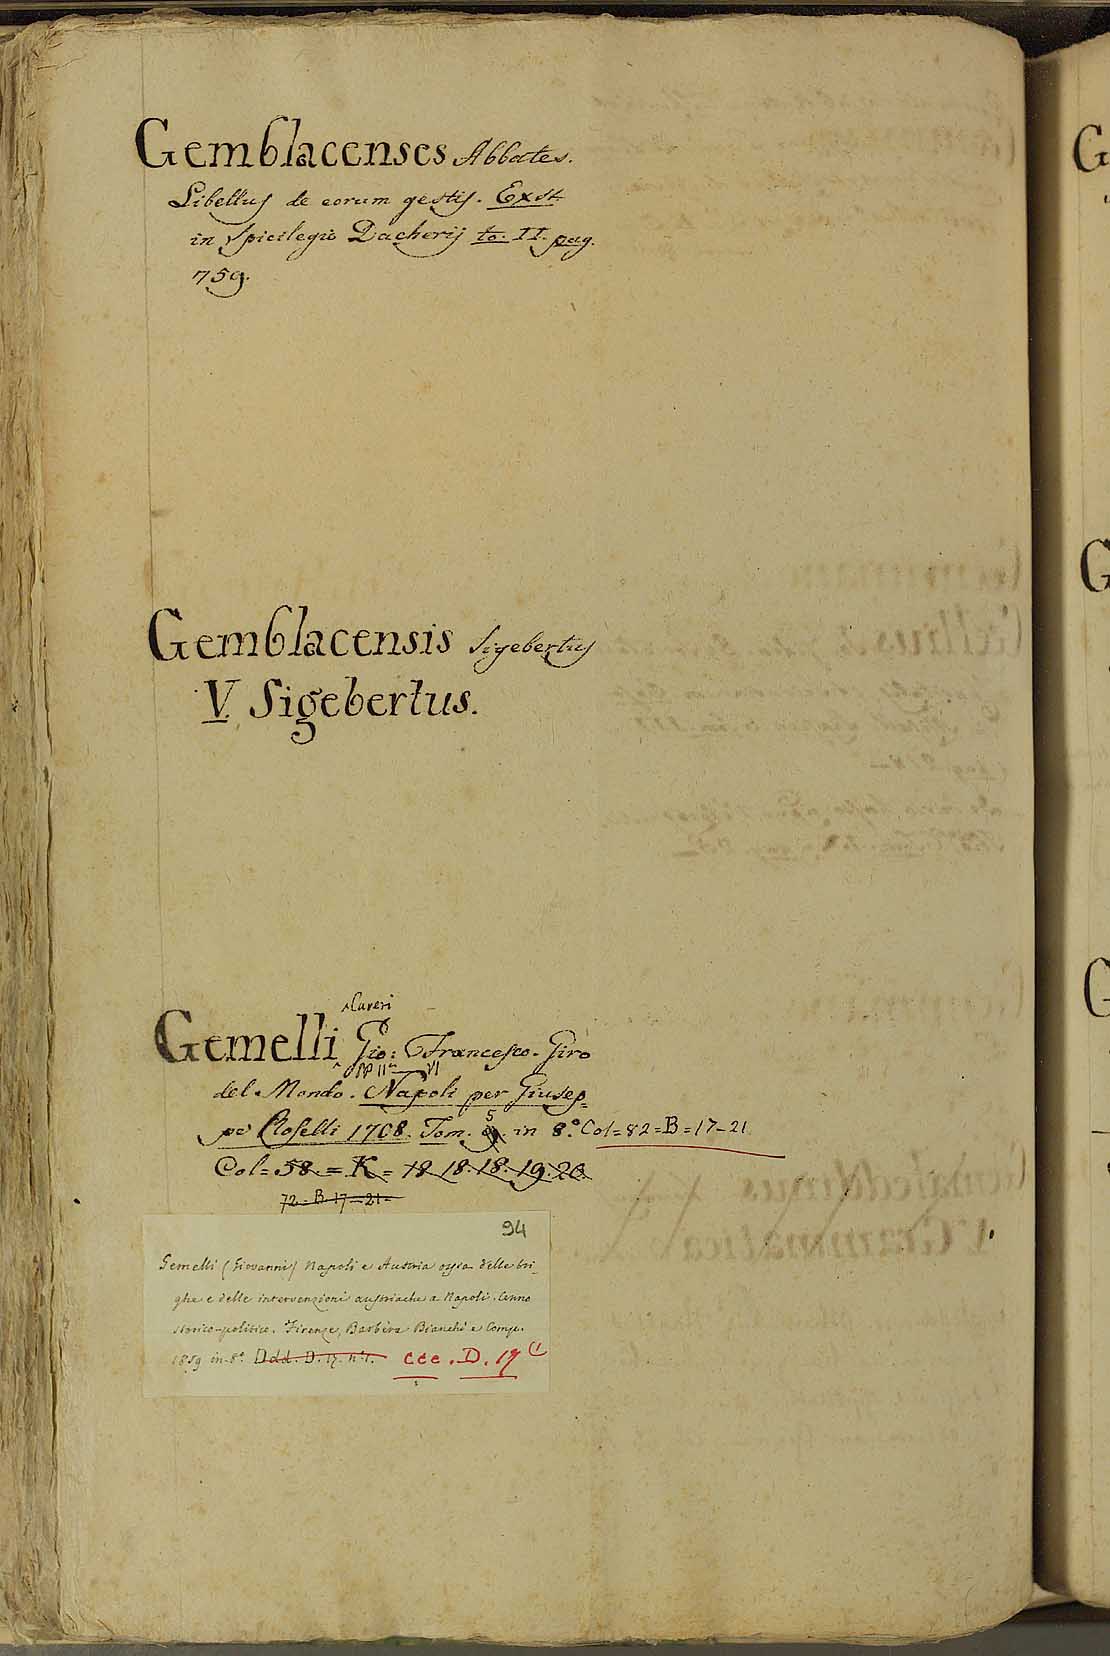 Gemblacenses Abbates.
Libellus de eorum gestis. Exst.
in Spicilegio Dacherij to. II. pag.
759.
Gemblacensis Sigebertus
V. Sigebertus.
Careri
Gemelli Gio: Francesco. Giro
del Mondo. Napoli per Giusep-
pe Roselli 1708. Tom. 5 in 8.° Col=82=B=17-21
Col=58=K=18 18.18.19.20.
72-B-17-21-
94
Gemelli (Giovanni) Napoli e Austria ossia delle bri-
ghe e delle intervenzioni austriache a Napoli. Cenno
storico-politico. Firenze, Barbèra Bianchi e Comp.
1859 in-8° Ddd. D. 17. n°1. ccc. D. 19 (1
G
G
G